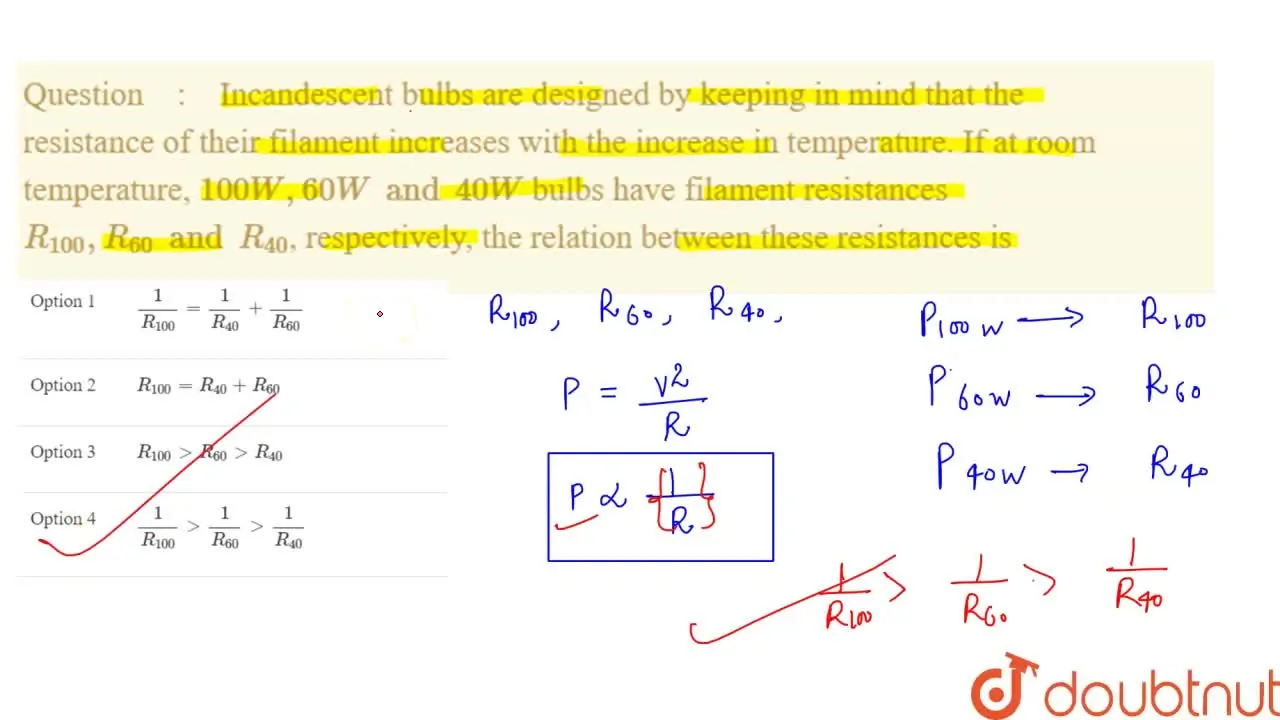 Question : Incandescent bulbs are designed by keeping in mind that the
resistance of their filament increases with the increase in temperature. If at room
temperature, 100W, 60W and 40W bulbs have filament resistances
R₁₀₀, R₆₀ and R₄₀, respectively, the relation between these resistances is
Option 1 1/R₁₀₀ = 1/R₄₀ + 1/R₆₀
Option 2 R₁₀₀ = R₄₀ + R₆₀
Option 3 R₁₀₀ > R₆₀ > R₄₀
Option 4 1/R₁₀₀ > 1/R₆₀ > 1/R₄₀
R₁₀₀, R₆₀, R₄₀,
P = V²/R
P ∝ 1/R
P₁₀₀W → R₁₀₀
P₆₀W → R₆₀
P₄₀W → R₄₀
1/R₁₀₀ > 1/R₆₀ > 1/R₄₀
doubtnut